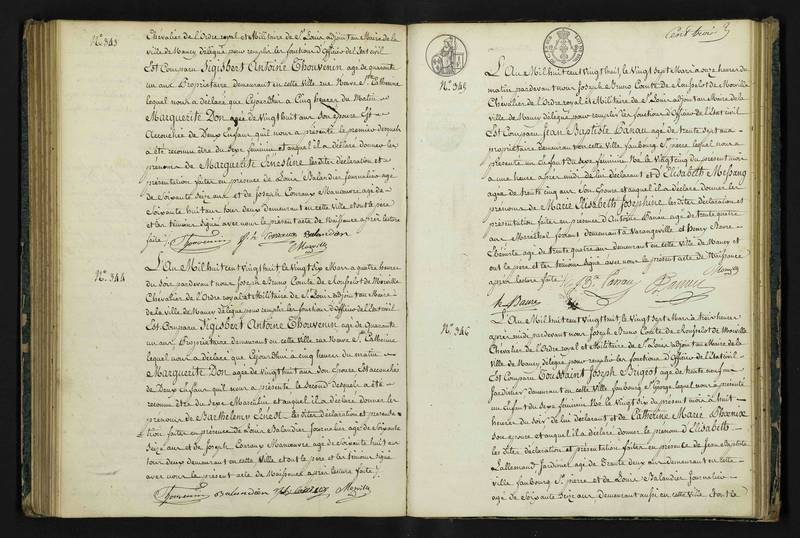 N.° 343
Chevalier de l'Ordre royal et Militaire de S.t Louis adjoint au Maire de la
ville de Nancy délégué pour remplir les fonctions d'Officier de l'Etat civil
Est Comparu Sigisbert Antoine Thouvenin agé de quarante
un ans Proprietaire demeurant en cette ville rue Neuve S.te Catherine
lequel nous a déclaré que Cejourd'hui à Cinq heures du Matin
Marguerite Don agée de Vingt huit ans Son epouse Est
Accouchée de Deux Enfans qu'il nous a présenté le premier desquels
a été reconnu être du Sexe féminin et auquel il a déclaré donner les
prénoms de Marguerite Ernestine lesdites déclaration et
présentation faites en présence de Louis Balandier Journalier agé
de Soixante Seize ans et de Joseph Manœuvre agé de
Soixante huit ans tous deux Demeurant en cette Ville et ont le père
et les témoins Signé avec nous le présent acte de Naissance après lecture
faite
Thouvenin
N.° 344
L'An Mil huit cent Vingt huit le Vingt Six Mars a quatre heures
du Soir pardevant nous Joseph Bruno Comte de
Chevalier de l'Ordre royal et Militaire de S.t Louis adjoint au Maire
de la ville de Nancy délégué pour remplir les fonctions d'Officier de l'Etat civil
Est Comparu Sigisbert Antoine Thouvenin agé de Quarante
un ans Proprietaire demeurant en cette Ville rue Neuve S.te Catherine
lequel nous a déclaré que Cejourd'hui à cinq heures du matin
Marguerite Don agée de Vingt huit ans Son epouse Est accouchée
de Deux Enfans qu'il nous a présenté le Second desquels a été
reconnu être du Sexe Masculin et auquel il a déclaré donner les
prénoms de Barthelemy Ernest lesdites déclaration et présenta-
tion faites en présence de Louis Balandier Journalier agé de Soixante
Seize ans et de Joseph Manœuvre agé de Soixante huit ans
tous deux demeurant en cette Ville et ont le père et les témoins signé
avec nous le présent acte de Naissance après lecture faite
Thouvenin
Cent trois
N.° 345
L'An Mil huit cent Vingt huit le Vingt Sept Mars à onze heures du
matin pardevant nous Joseph Bruno Comte de
Chevalier de l'Ordre royal et Militaire de S.t Louis adjoint au Maire de la
ville de Nancy délégué pour remplir les fonctions d'Officier de l'Etat civil
Est Comparu Jean Baptiste Panau agé de trente sept ans
proprietaire demeurant en cette Ville faubourg S.t pierre lequel nous a
présenté un Enfant du Sexe féminin Né le Vingt cinq du présent mois
à une heure après midi de lui déclarant et d'Elisabeth Messang
agée de trente cinq ans Son epouse et auquel il a déclaré donner les
prénoms de Marie Elisabeth Josephine lesdites déclaration et
présentation faites en présence d'Antoine Panau agé de trente quatre
ans Maréchal ferrant demeurant à Varangeville et henry Baure
agé de trente quatre ans demeurant en cette Ville de Nancy et
ont le père et les témoins signé avec nous le présent acte de Naissance
après lecture faite
h. Baure
N.° 346
L'An Mil huit cent Vingt huit le Vingt Sept Mars à trois heures
après midi pardevant nous Joseph Bruno Comte de
Chevalier de l'Ordre royal et Militaire de S.t Louis adjoint au Maire de la
Ville de Nancy délégué pour remplir les fonctions d'Officier de l'Etat civil
Est Comparu Toussaint Joseph Brigeot agé de trente neuf ans
Jardinier demeurant en cette Ville faubourg S.t George lequel nous a présenté
un Enfant du Sexe féminin Né le Vingt Six du présent mois à huit
heures du Soir de lui déclarant et de Catherine Marie
Son epouse et auquel il a déclaré donner le prénom d'Elisabeth
les dites déclaration et présentation faites en présence de Jean Baptiste
Lallemand agé de trente deux ans demeurant en cette
ville faubourg S.t pierre et de Louis Balandier Journalier
agé de Soixante Seize ans demeurant aussi en cette Ville et ont le